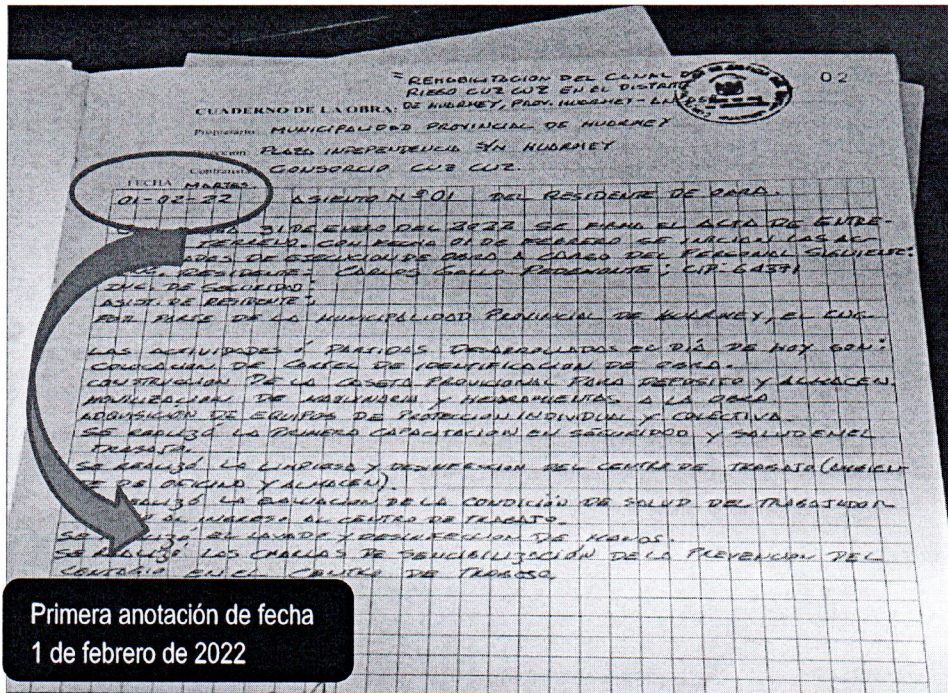 "REHABILITACION DEL CANAL D
RIEGO CUZ CUZ EN EL DISTRITO
02
CUADERNO DE LA OBRA: DE HUARMEY, PROV. HUARMEY - AN
Propietario: MUNICIPALIDAD PROVINCIAL DE HUARMEY
PLAZA INDEPENDENCIA S/N HUARMEY
Contratista: CONSORCIO CUZ CUZ
FECHA MARTES.
01-02-22 ASIENTO Nº 01 DEL RESIDENTE DE OBRA.
31 DE ENERO DEL 2022 SE FIRMA EL ACTA DE ENTRE-
TERRENO. CON FECHA 01 DE FEBRERO SE INICIAN LAS AC
DADES DE EJECUCION DE OBRA A CARGO DEL PERSONAL SIGUIENTE:
RESIDENTE: CARLOS GALLO : CIP: 64371
ING. DE SEGURIDAD:
ASIST. DE RESIDENTE:
POR PARTE DE LA MUNICIPALIDAD PROVINCIAL DE HUARMEY, EL ING.
LAS ACTIVIDADES Ó PARTIDAS DESARROLLADAS EL DÍA DE HOY SON:
COLOCACION DE CARTEL DE IDENTIFICACION DE OBRA.
CONSTRUCION DE LA CASETA PROVICIONAL PARA DEPOSITO Y ALMACEN.
MOVILIZACION DE MAQUINARIA Y HERRAMIENTAS A LA OBRA
ADQUISICIÓN DE EQUIPOS DE PROTECCION INDIVIDUAL Y COLECTIVA.
SE REALIZÓ LA PRIMERA CAPACITACION EN SEGURIDAD Y SALUD EN EL
TRABAJO.
SE REALIZÓ LA LIMPIESA Y DESINFECSION DEL CENTRO DE TRABAJO (AMBIEN-
TE DE OFICINA Y ALMACEN).
REALIZÓ LA EVALUACION DE LA CONDICIÓN DE SALUD DEL TRABAJADOR
AL INGRESO AL CENTRO DE TRABAJO.
SE REALIZÓ, EL LAVADO Y DESINFECCION DE MANOS.
SE REALIZÓ LAS CHARLAS DE SENCIBILIZACIÓN DE LA PREVENCION DEL
CONTAGIO EN EL CENTRO DE TRABAJO.
Primera anotación de fecha
1 de febrero de 2022